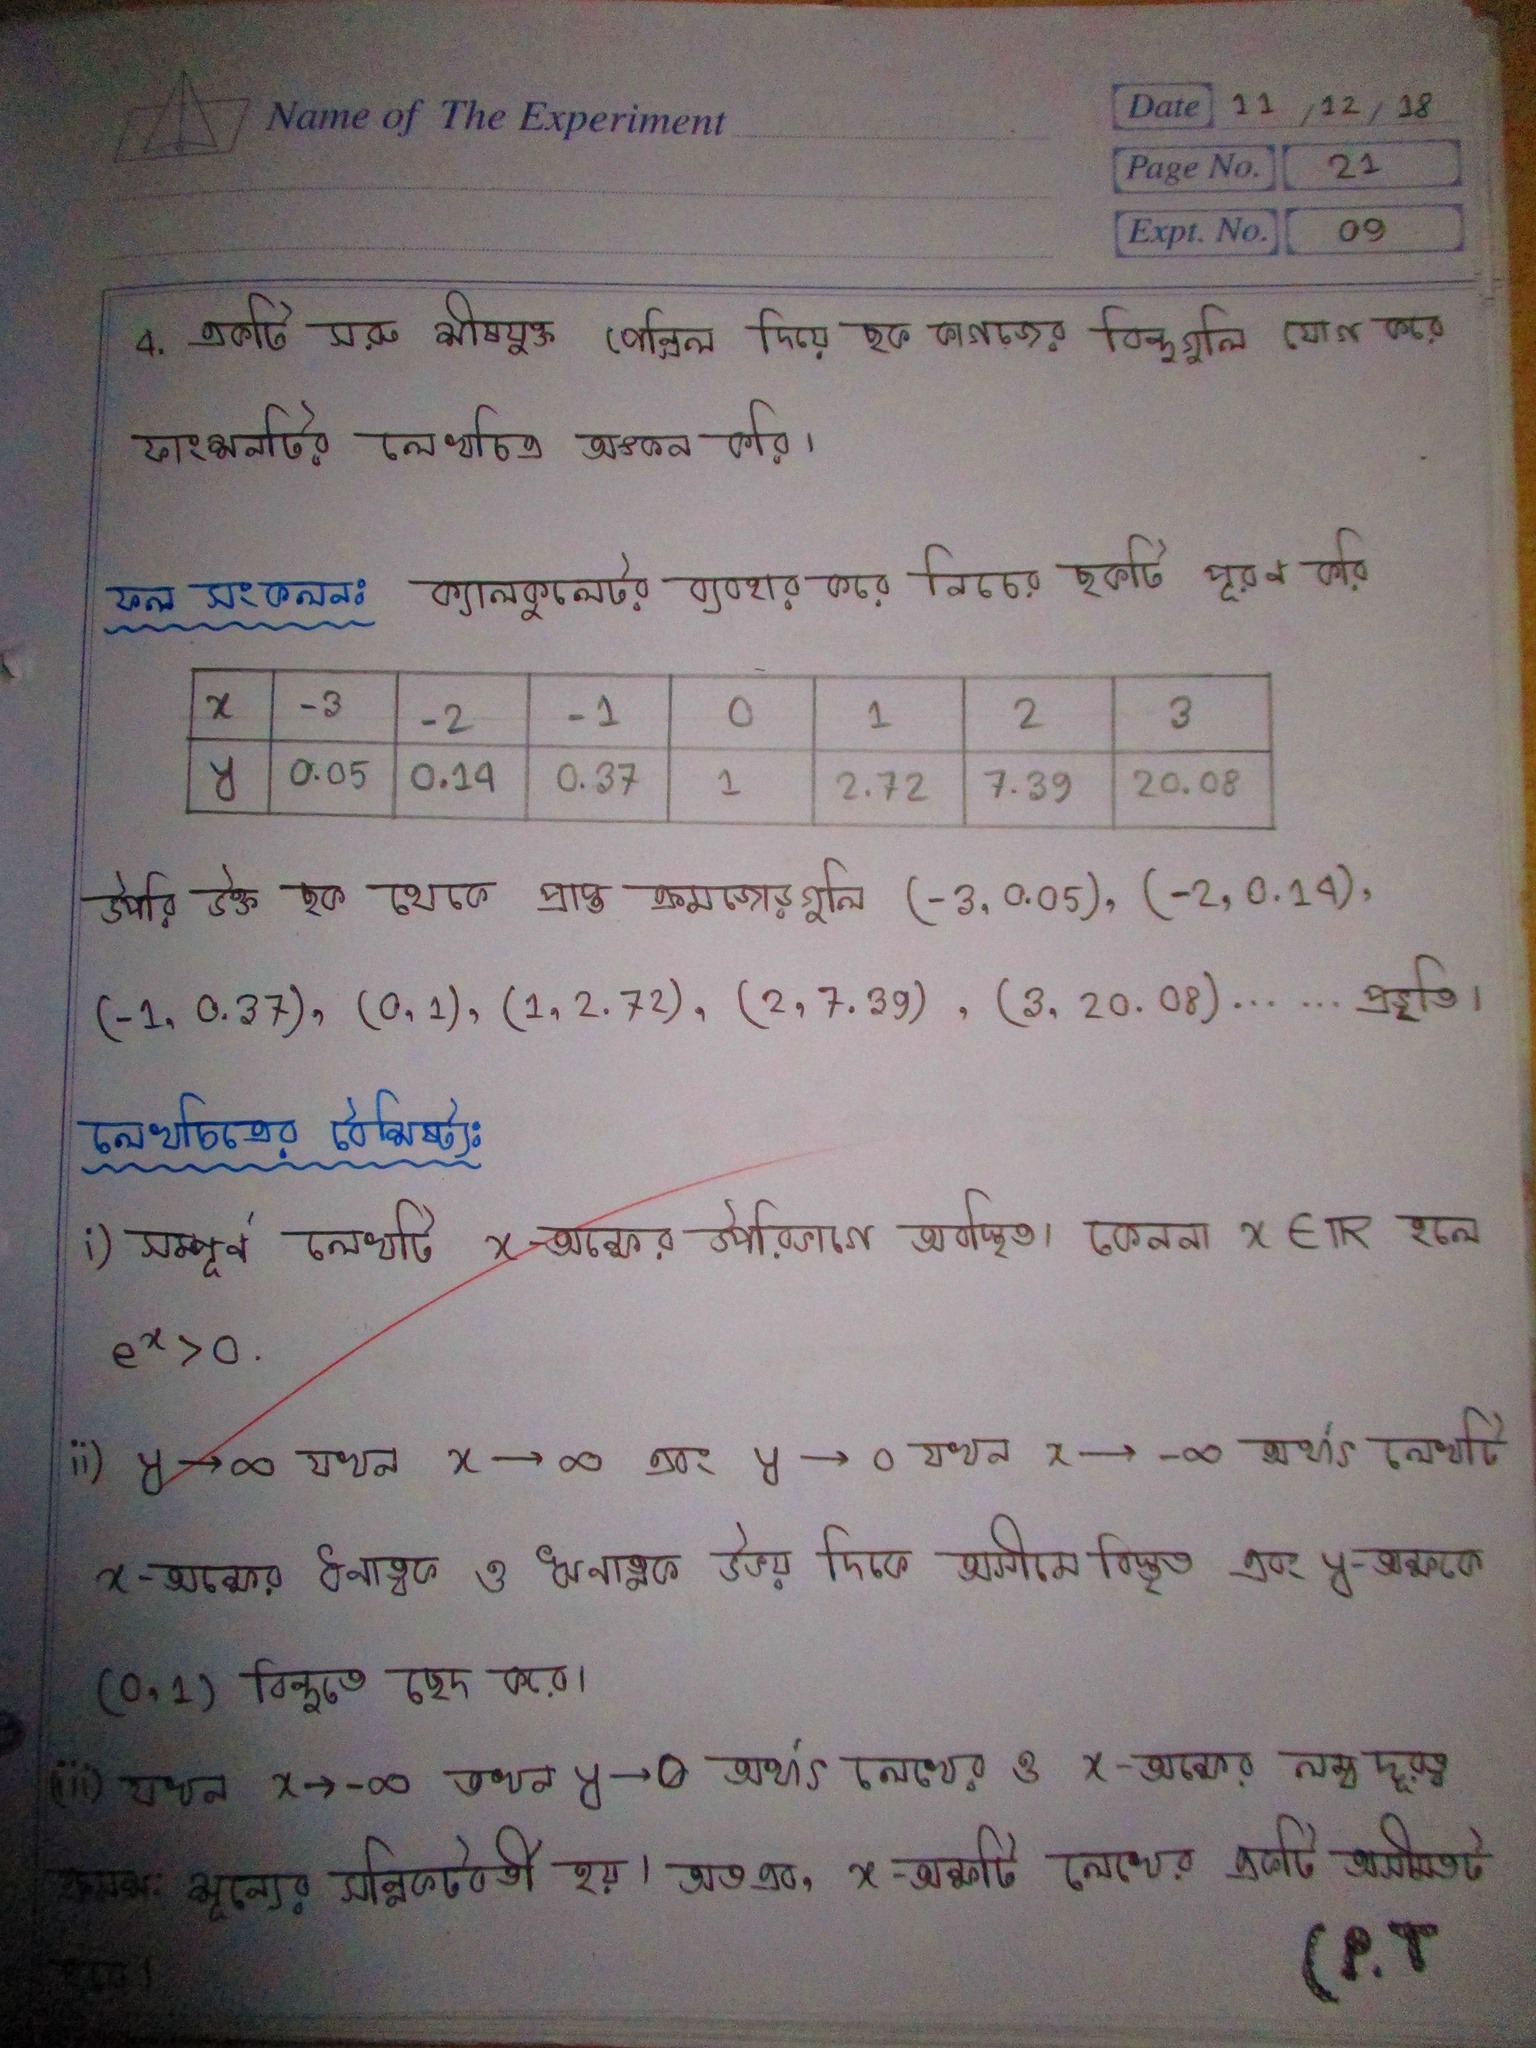 Name of The Experiment
Date 11 / 12 / 18
Page No. 21
Expt. No. 09
4. একটি সরু শীষযুক্ত পেন্সিল দিয়ে ছক কাগজের বিন্দুগুলি যোগ করে
ফাংশনটির লেখচিত্র অংকন করি।
ফল সংকলনঃ ক্যালকুলেটর ব্যবহার করে নিচের ছকটি পূরণ করি
x -3 -2 -1 0 1 2 3
y 0.05 0.14 0.37 1 2.72 7.39 20.08
উপরি উক্ত ছক থেকে প্রাপ্ত ক্রমজোড়গুলি (-3, 0.05), (-2, 0.14),
(-1, 0.37), (0,1), (1, 2.72), (2, 7.39) , (3, 20.08) ...... প্রভৃতি।
লেখচিত্রের বৈশিষ্ট্যঃ
i) সম্পূর্ণ লেখটি x-অক্ষের উপরিভাগে অবস্থিত। কেননা x ∈ ℝ হলে
eˣ > 0.
ii) y → ∞ যখন x → ∞ এবং y → 0 যখন x → -∞ অর্থাৎ লেখটি
x-অক্ষের ধনাত্বক ও ঋনাত্নক উভয় দিকে অসীমে বিস্তৃত এবং y-অক্ষকে
(0,1) বিন্দুতে ছেদ করে।
iii) যখন x → -∞ তখন y → 0 অর্থাৎ লেখের ও x-অক্ষের লম্ব দূরত্ব
ক্রমশঃ শূন্যের সন্নিকটবর্তী হয়। অতএব, x-অক্ষটি লেখের একটি অসীমতট
হবে।
(P.T